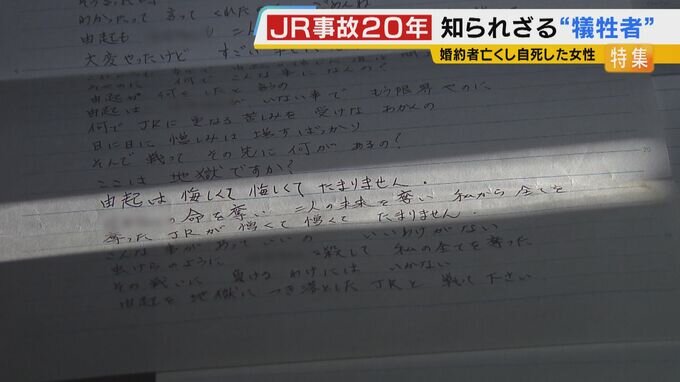 JR事故20年 知られざる“犠牲者”
婚約者亡くし自死した女性
特集
由起も
大変やったけど すごい
由起が 何をしたと言うの
由起は いない事で もう限界やのに
何で JRに 更なる苦しみを 受けな あかんの
日に日に 憎しみは 増すばっかり
そんで 戦って その先に 何が あるの?
ここは 地獄ですか?
由起は 悔しくて 悔しくて たまりません.
命を奪い 二人の未来を奪い 私から全てを
奪った JRが 憎くて 憎くて たまりません.
こんな事が あって いいの いいわけがない
虫けらのように 殺して 私の全てを奪った
その戦いに 負ける わけには いかない
由起を 地獄に つき落とした JRと 戦って下さい